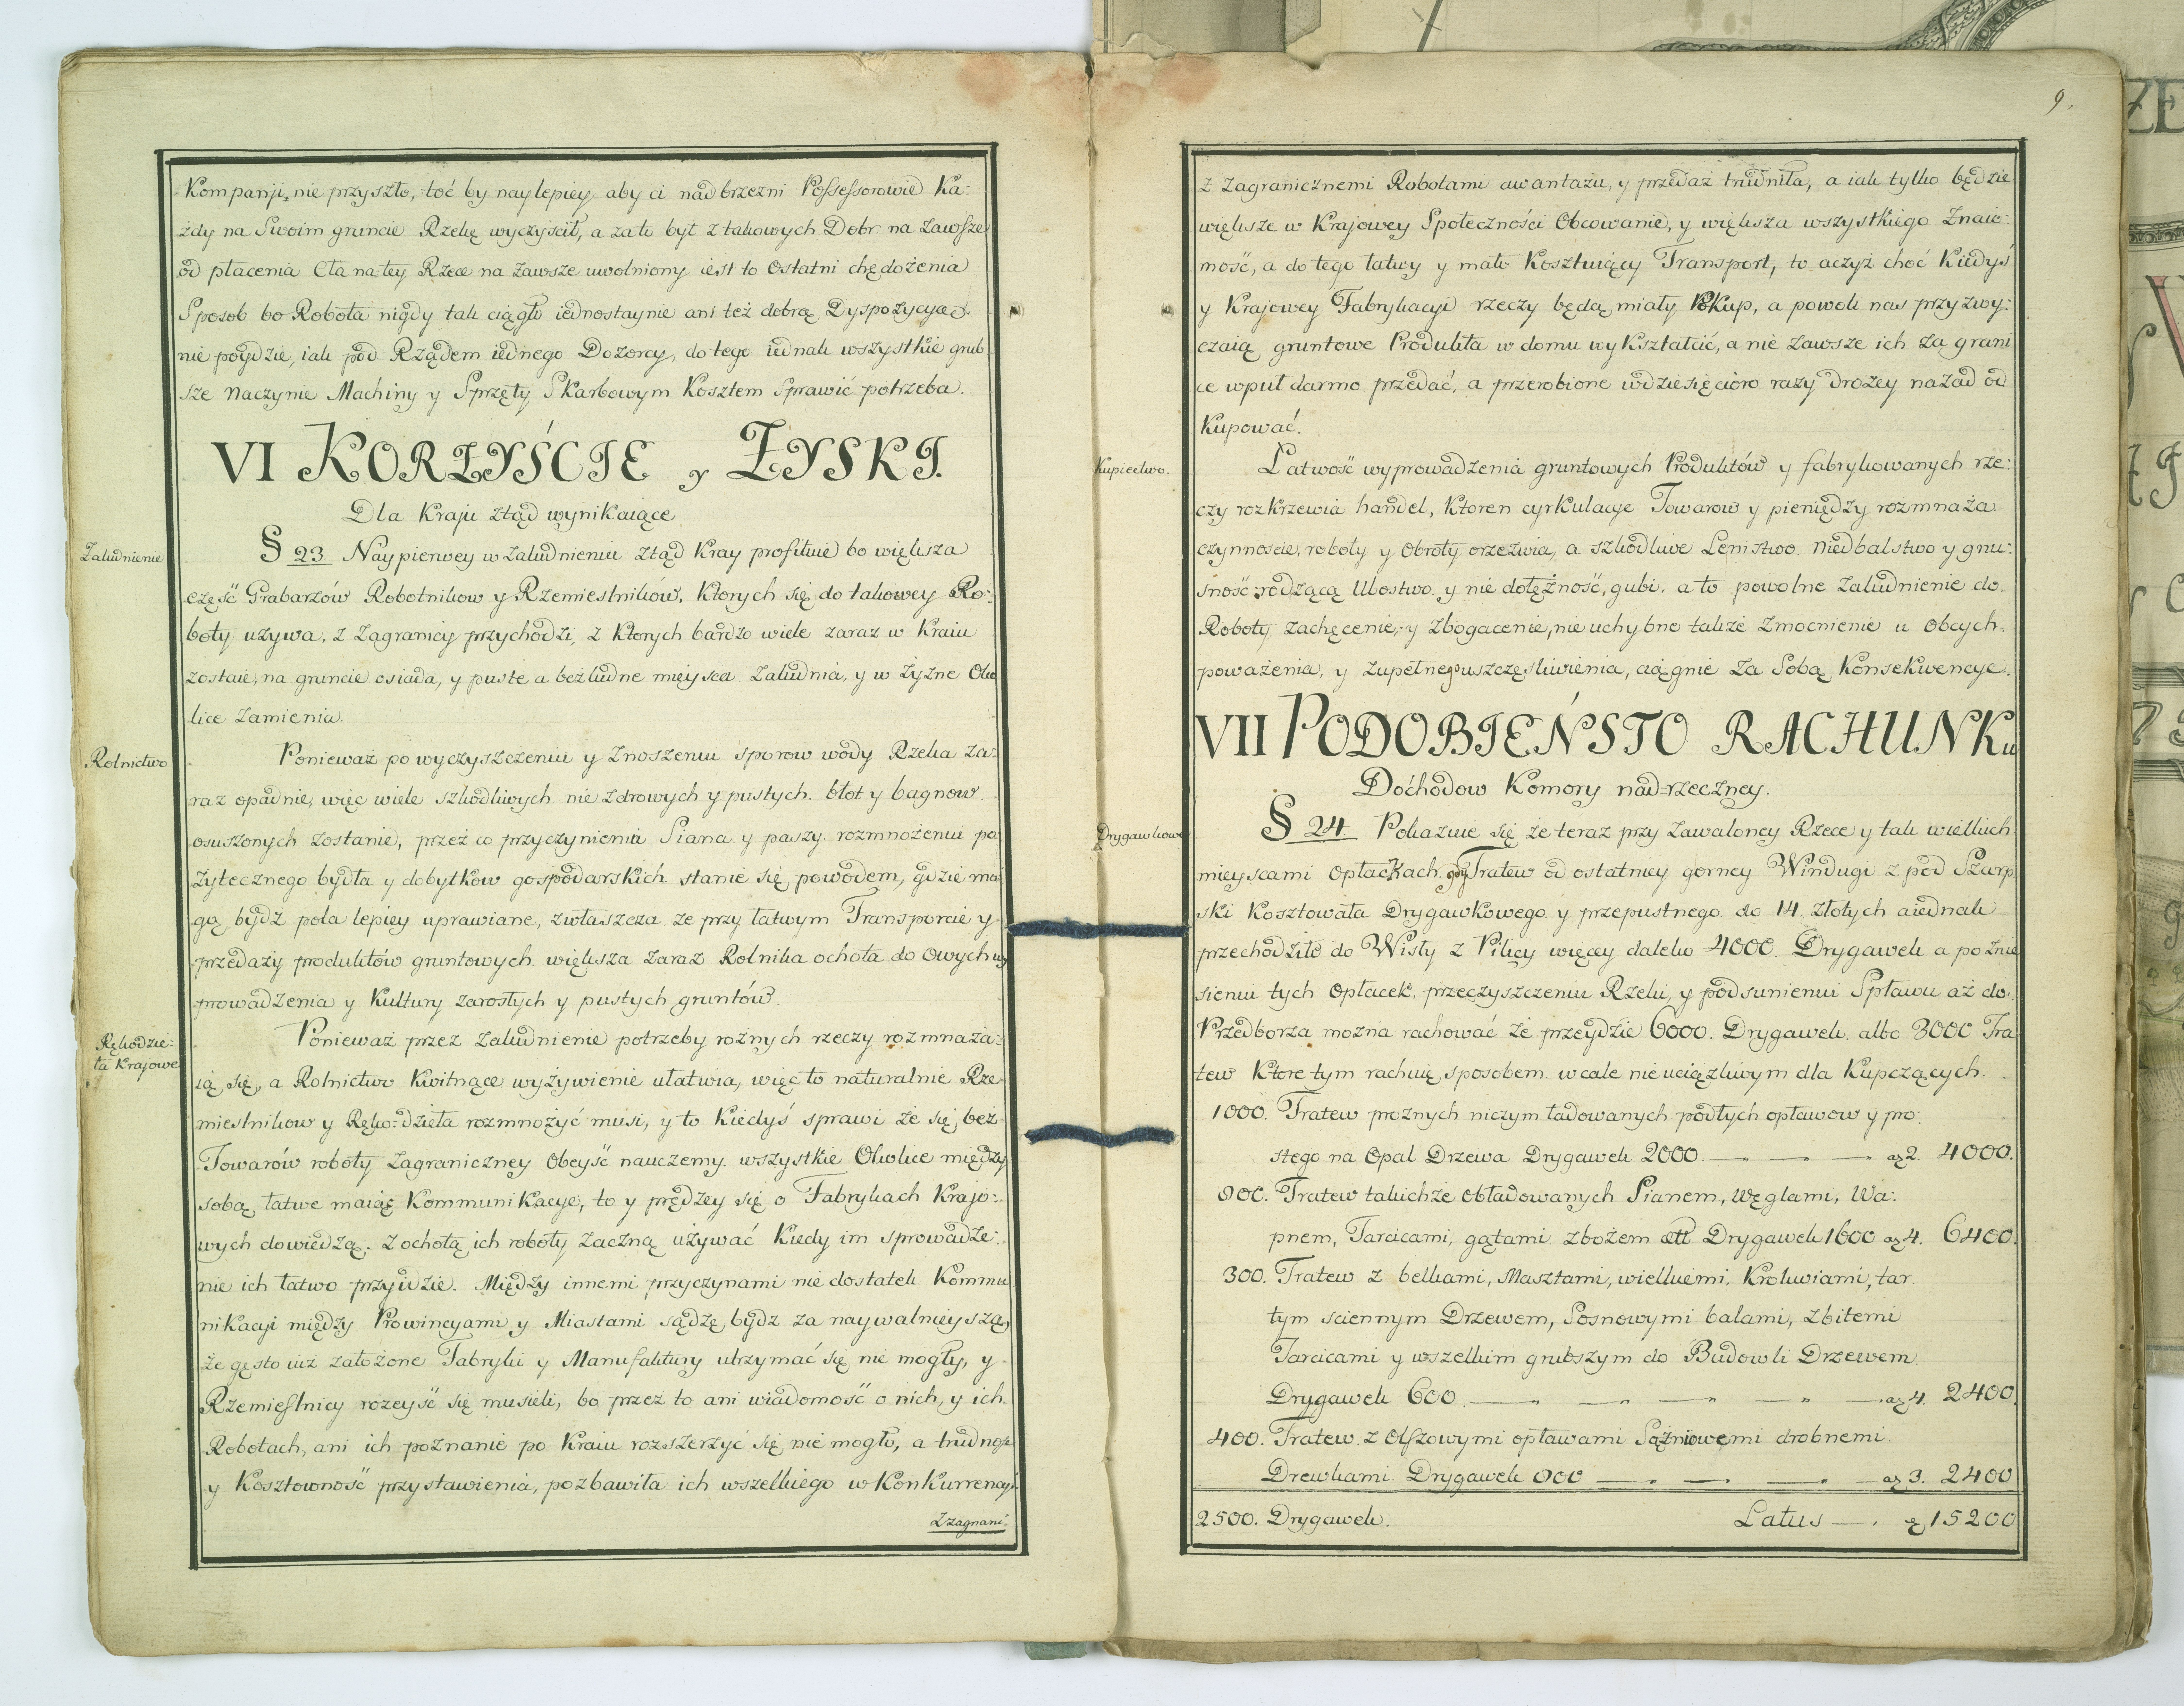 Kompanji, nie przyszło, toć by naylepiey aby ci nadbrzezni Possessorowie Ka:
żdy na Swoim gruncie Rzekę wyczyścił, a zato był z takowych Dobr na zawsze
od płacenia Cła na tey Rzece na zawsze uwolniony iest to Ostatni chędożenia
Sposob bo Robota nigdy tak ciągło iednostaynie ani też dobrą Dyspozycyą
nie poydzie, iak pod Rządem iednego Dozorcy, do tego iednak wszystkie grub
sze Naczynie Machiny y Sprzęty Skarbowym Kosztem Sprawić potrzeba.
VI KORZYŚCIE y ZYSKI.
Dla Kraju ztąd wynikaiące
Zaludnienie
§ 23. Naypierwey w Zaludnieniu ztąd Kray profituie bo większa
część Grabarzów Robotnikow y Rzemiestników, Ktorych się do takowey Ro:
boty używa, z Zagranicy przychodzi, z Ktorych bardzo wiele zaraz w Kraiu
zostaie, na gruncie osiada, y puste a bezludne mieysca Zaludnia, y w żyzne Oko
lice zamienia.
Rolnictwo
Ponieważ po wyczyszczeniu y Znoszeniu sporow wody Rzeka za:
raz opadnie, więc wiele szkodliwych nie zdrowych y pustych błot y bagnow
osuszonych zostanie, przez co przyczynieniu Siana y paszy rozmnożeniu po
żytecznego bydła y dobytkow gospodarskich stanie się powodem, gdzie mo
gą bydź pola lepiey uprawiane, zwłaszcza ze przy łatwym Transporcie y
przedazy produktów gruntowych większa zaraz Rolnika ochota do Owych wy
prowadzenia y Kultury zarosłych y pustych gruntów.
Rękodzie:
ła Krajowe
Ponieważ przez Zaludnienie potrzeby rożnych rzeczy rozmnaża:
ią się, a Rolnictwo Kwitnące wyżywienie ułatwia, więc to naturalnie Rze
miestnikow y Ręko:dzieła rozmnożyć musi, y to Kiedyś sprawi że się bez
Towarów roboty Zagraniczney Obeyść nauczemy. wszystkie Okolice między
sobą łatwe maiąc Kommunikacye, to y prędzey się o Fabrykach Krajo:
wych dowiedzą. z ochotą ich roboty zaczną używać Kiedy im sprowadze:
nie ich łatwo przyidzie. Między innemi przyczynami nie dostatek Kommu
nikacyi między Prowincyami y Miastami sądzę bydz za naywalnieyszą,
że gęsto iuz założone Fabryki y Manufaktury utrzymać się nie mogły, y
Rzemieslnicy rozeyść się musieli, bo przez to ani wiadomość o nich, y ich
Robotach, ani ich poznanie po Kraiu rozszerzyć się nie mogło, a trudność
y Kosztowność przystawienia, pozbawiła ich wszelkiego w Konkurrencyi
Z zagrani:
9.
z Zagranicznemi Robotami awantażu, y przedaż trudniła, a iak tylko będzie
większe w Krajowey Społeczności Obcowanie, y większa wszystkiego Znaio:
mość, a do tego łatwy y mało Kosztuiący Transport, to aczyż choć Kiedyś
y Krajowey Fabrykacyi rzeczy będą miały Pokup, a powoli nas przyzwy:
czaią gruntowe Produkta w domu wykształcić, a nie zawsze ich za grani
ce wpuł darmo przedać, a przerobione wdziesięcioro razy drożey nazad od
Kupować.
Kupiectwo.
Latwość wyprowadzenia gruntowych Produktów y fabrykowanych rze:
czy rozkrzewia handel, Ktoren cyrkulacye Towarow y pieniędzy rozmnaża
czynnoście, roboty y Obroty orzezwia, a szkodliwe Lenistwo, niedbalstwo y gnu:
śność rodzącą Ubostwo, y nie dołężność, gubi, a to powolne Zaludnienie do
Roboty zachęcenie, y zbogacenie, nie uchybne takze zmocnienie u Obcych
poważenia, y zupełne uszczęsliwienia, ciągnie za Sobą Konsekwencye.
VII PODOBIEŃSTO RACHUNKu
Dochodow Komory nad-rzeczney.
Drygawkowe
§ 24. Pokazuie się że teraz przy zawaloney Rzece y tak wielkich
mieyscami Opłackach gdy Tratew od ostatniey gorney Windugi z pod Szarp
ski Kosztowała Drygawkowego y przepustnego do 14 złotych aiednak
przechodziło do Wisły z Pilicy więcey daleko 4000. Drygawek a po znie
sieniu tych Opłacek, przeczyszczeniu Rzeki, y podsunieniu Spławu aż do
Przedborza mozna rachować że przeydzie 6000. Drygawek albo 3000 Tra
tew Ktore tym rachuię sposobem wcale nie uciązliwym dla Kupczących.
1000. Tratew proznych niczym ładowanych podłych opławow y pro:
stego na Opał Drzewa Drygawek 2000 — — — az 2. 4000.
800. Tratew takichze obładowanych Sianem, węglami, Wa:
pnem, Tarcicami, gątami zbożem ett Drygawek 1600 az 4. 6400.
300. Tratew z belkami, Masztami, wielkiemi Krokwiami, tar
tym sciennym Drzewem, Sosnowymi balami, zbitemi
Tarcicami y wszelkim grubszym do Budowli Drzewem
Drygawek 600. — — — — — az 4. 2400.
400. Tratew z Olszowymi opławami Sążniowemi drobnemi
Drewkami Drygawek 800 — — — — az 3. 2400
2500. Drygawek. Latus — . 15200